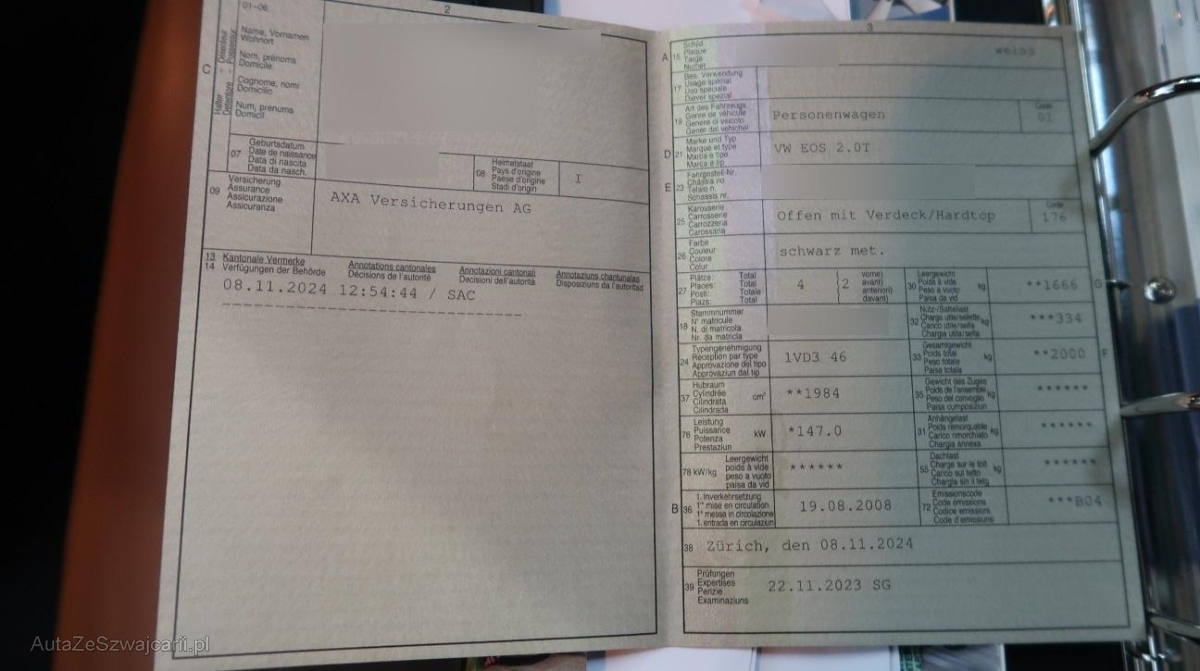 2
01-06
C
Halter - Détenteur
Detentore - Possessur
Name, Vornamen
Wohnort
Nom, prénoms
Domicile
Cognome, nomi
Domicilio
Num, prenums
Domicil
07
Geburtsdatum
Date de naissance
Data di nascita
Data da nasch.
08
Heimatstaat
Pays d'origine
Paese d'origine
Stadi d'origin
I
09
Versicherung
Assurance
Assicurazione
Assicuranza
AXA Versicherungen AG
13
14
Kantonale Vermerke
Verfügungen der Behörde
Annotations cantonales
Décisions de l'autorité
Annotazioni cantonali
Decisioni dell'autorità
Annotaziuns chantunalas
Disposiziuns da l'autoritad
08.11.2024 12:54:44 / SAC
3
A
15
Schild
Plaque
Targa
Numer
weiss
17
Bes. Verwendung
Usage spécial
Uso speciale
Diever spezial
19
Art des Fahrzeugs
Genre de véhicule
Genere di veicolo
Gener dal vehichel
Personenwagen
Code
01
D
21
Marke und Typ
Marque et type
Marca e tipo
Marca e tip
VW EOS 2.0T
E
23
Fahrgestell-Nr.
Châssis no
Telaio n.
Schassis nr.
25
Karosserie
Carrosserie
Carrozzeria
Carossaria
Offen mit Verdeck/Hardtop
Code
176
26
Farbe
Couleur
Colore
Colur
schwarz met.
27
Plätze: Total
Places: Total
Posti: Totale
Plazs: Total
4
2
vorne)
avant)
anteriori)
davant)
30
Leergewicht
Poids à vide
Peso a vuoto
Paisa da vid
kg
**1666
G
18
Stammnummer
N° matricule
N. di matricola
Nr. da matricla
32
Nutz-/Sattellast
Charge utile/sellette
Carico utile/sella
Chargia utila/sella
kg
***334
24
Typengenehmigung
Réception par type
Approvazione del tipo
Approvaziun dal tip
1VD3 46
33
Gesamtgewicht
Poids total
Peso totale
Paisa totala
kg
**2000
F
37
Hubraum
Cylindrée
Cilindrata
Cilindrada
cm³
**1984
35
Gewicht des Zuges
Poids de l'ensemble
Peso del convoglio
Paisa cumposiziun
kg
******
76
Leistung
Puissance
Potenza
Prestaziun
kW
*147.0
31
Anhängelast
Poids remorquable
Carico rimorchiato
Chargia annexa
kg
******
78 kW/kg
Leergewicht
poids à vide
peso a vuoto
paisa da vid
******
55
Dachlast
Charge sur le toit
Carico sul tetto
Chargia sin il tetg
kg
******
B
36
1. Inverkehrsetzung
1re mise en circulation
1a messa in circolazione
1. entrada en circulaziun
19.08.2008
72
Emissionscode
Code émissions
Codice emissioni
Code d'emissiuns
***B04
38
Zürich, den 08.11.2024
39
Prüfungen
Expertises
Perizie
Examinaziuns
22.11.2023 SG
AutaZeSzwajcarii.pl